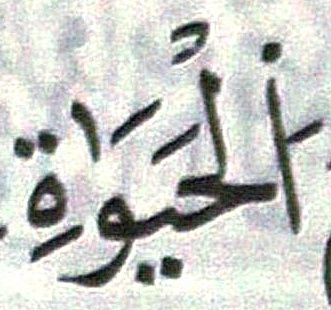 اَ۬لْحَيَوٰةِ